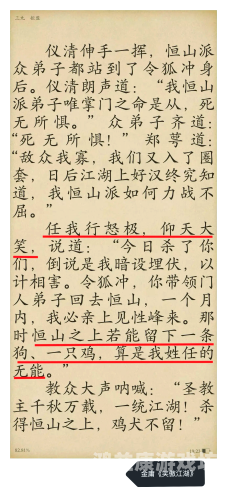 仪清伸手一挥，恒山派
众弟子都站到了令狐冲身
后。仪清朗声道：“我恒山
派弟子唯掌门之命是从，死
无所惧。”众弟子齐道：
“死无所惧！”郑萼道：
“敌众我寡，我们又入了圈
套，日后江湖上好汉终究知
道，我恒山派如何力战不
屈。”
任我行怒极，仰天大
笑，说道：“今日杀了你
们，倒说是我暗设埋伏，以
计相害。令狐冲，你带领门
人弟子回去恒山，一个月
内，我必亲上见性峰来。那
时恒山之上若能留下一条
狗、一只鸡，算是我姓任的
无能。”
教众大声呐喊：“圣教
主千秋万载，一统江湖！杀
得恒山之上，鸡犬不留！”
金庸《笑傲江湖》